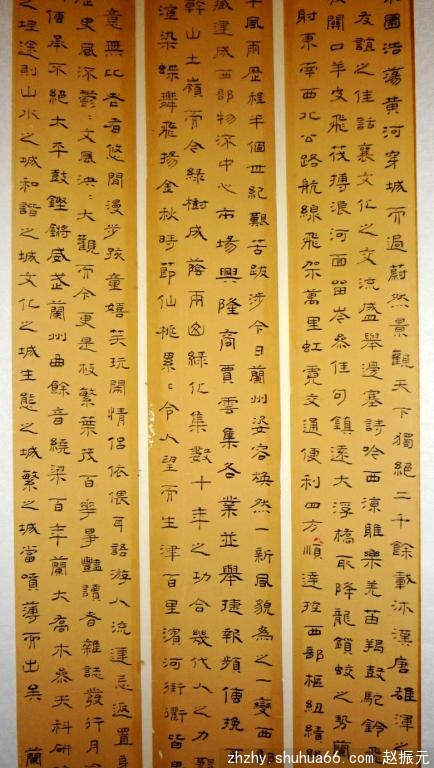 浩蕩黃河穿城而過蔚然景觀天下獨絕二千餘載沐漢唐雄渾之
友誼之佳話襄文化之交流盛舉邊塞詩吟西涼雅樂羌笛羯鼓駝鈴飛
開口羊皮飛筏搏浪河面留岑參佳句鎮遠大浮橋取降龍鎖蛟之勢蘭
射東南西北公路航線飛架萬里虹霓交通便利四方順達控西部樞紐績
風雨歷程半個世紀艱苦跋涉今日蘭州姿容煥然一新風貌為之一變西
藏達成西部物流中心市場興隆商賈雲集各業並舉捷報頻傳挽
幹山土嶺而今綠樹成蔭兩山綠化集數十年之功合幾代人之力艱
渲染蝶舞飛揚金秋時節仙桃累々令人望而生津百里濱河街衢皆
意無比老者悠閒漫步孩童嬉笑玩鬧情侶依偎耳語遊人流連忘返置身
歷史風流鬱々文風洪々大觀而今更是枝繁葉茂百花爭艷讀者雜誌發行月
傳承不絕太平鼓鏗鏘威武蘭州曲餘音繞梁百年蘭大喬木參天科研
之坦途則山水之城和諧之城文化之城生態之城繁之城當噴薄而出矣 蘭
zhzhy.shuhua66.com 赵振元